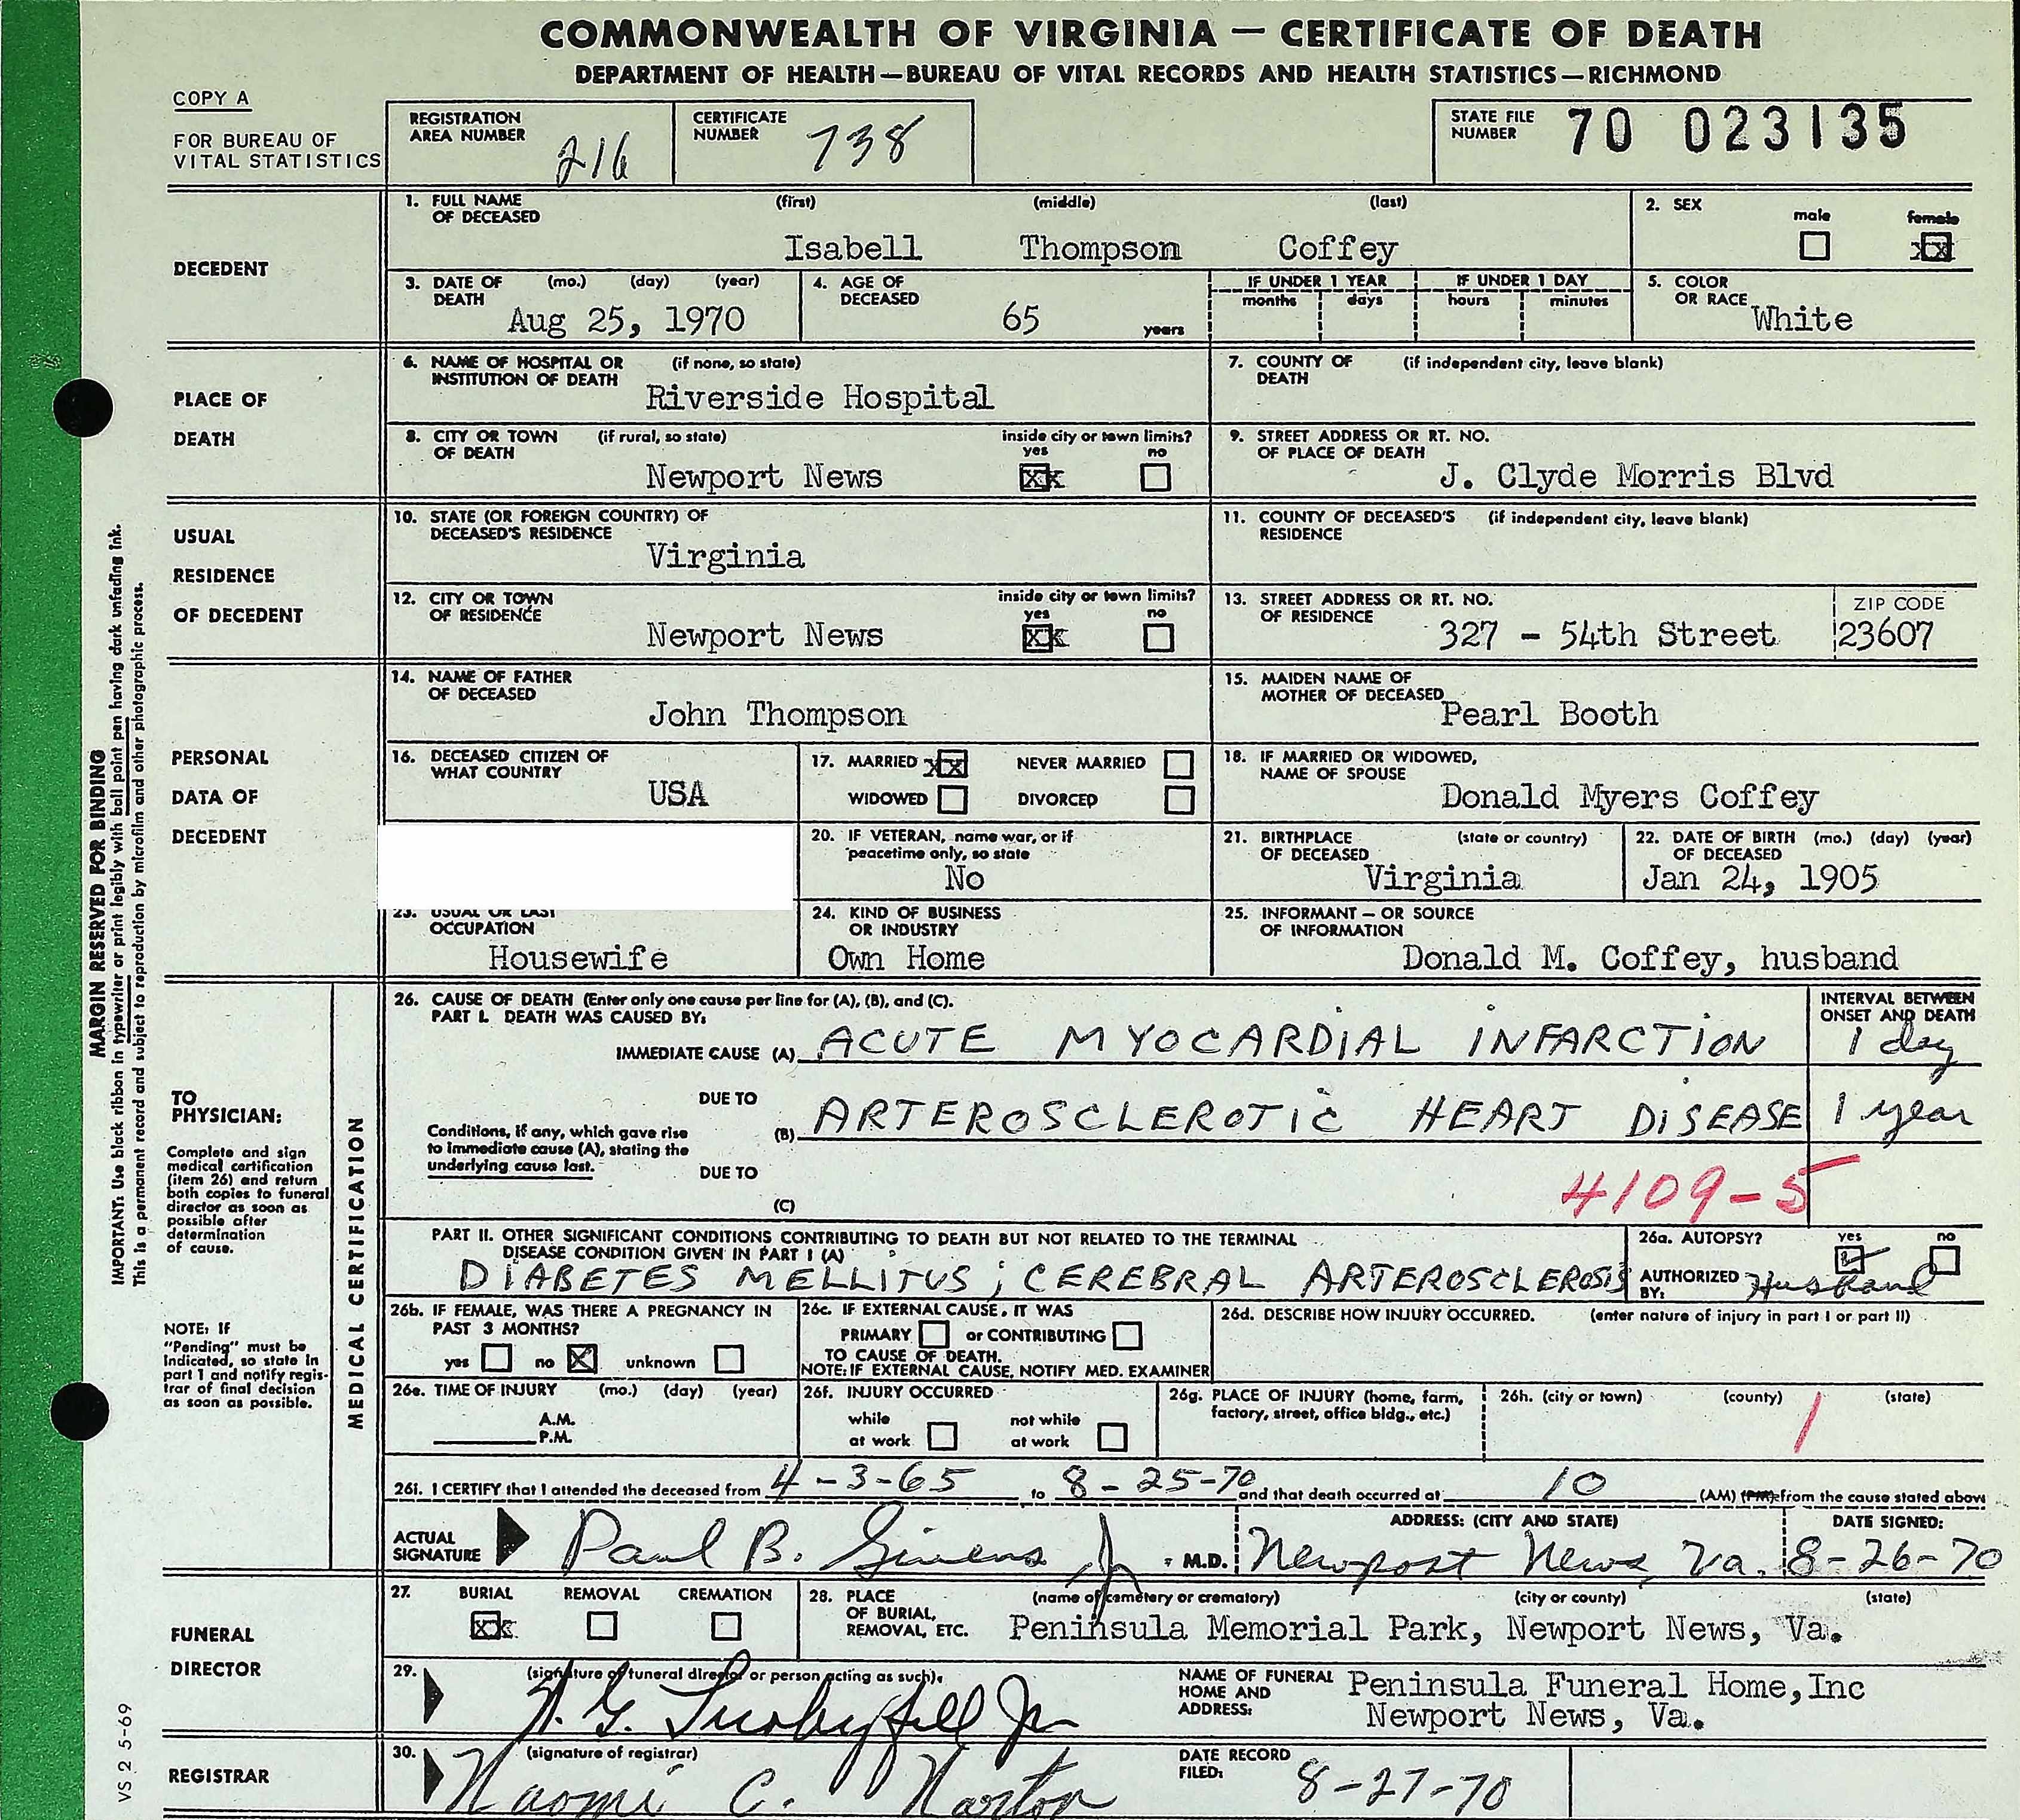 COMMONWEALTH OF VIRGINIA — CERTIFICATE OF DEATH
DEPARTMENT OF HEALTH—BUREAU OF VITAL RECORDS AND HEALTH STATISTICS—RICHMOND
COPY A
FOR BUREAU OF
VITAL STATISTICS
REGISTRATION
AREA NUMBER 216
CERTIFICATE
NUMBER 738
STATE FILE
NUMBER 70 023135
DECEDENT
1. FULL NAME (first) (middle) (last)
OF DECEASED
Isabell Thompson Coffey
2. SEX male female
xx
3. DATE OF (mo.) (day) (year)
DEATH
Aug 25, 1970
4. AGE OF
DECEASED
65 years
IF UNDER 1 YEAR IF UNDER 1 DAY
months days hours minutes
5. COLOR
OR RACE White
PLACE OF
DEATH
6. NAME OF HOSPITAL OR (if none, so state)
INSTITUTION OF DEATH
Riverside Hospital
7. COUNTY OF (if independent city, leave blank)
DEATH
8. CITY OR TOWN (if rural, so state) inside city or town limits?
OF DEATH yes no
Newport News xx
9. STREET ADDRESS OR RT. NO.
OF PLACE OF DEATH
J. Clyde Morris Blvd
USUAL
RESIDENCE
OF DECEDENT
10. STATE (OR FOREIGN COUNTRY) OF
DECEASED'S RESIDENCE
Virginia
11. COUNTY OF DECEASED'S (if independent city, leave blank)
RESIDENCE
12. CITY OR TOWN inside city or town limits?
OF RESIDENCE yes no
Newport News xx
13. STREET ADDRESS OR RT. NO.
OF RESIDENCE
327 - 54th Street
ZIP CODE
23607
PERSONAL
DATA OF
DECEDENT
14. NAME OF FATHER
OF DECEASED
John Thompson
15. MAIDEN NAME OF
MOTHER OF DECEASED
Pearl Booth
16. DECEASED CITIZEN OF
WHAT COUNTRY
USA
17. MARRIED xx NEVER MARRIED
WIDOWED DIVORCED
18. IF MARRIED OR WIDOWED,
NAME OF SPOUSE
Donald Myers Coffey
20. IF VETERAN, name war, or if
peacetime only, so state
No
21. BIRTHPLACE (state or country)
OF DECEASED
Virginia
22. DATE OF BIRTH (mo.) (day) (year)
OF DECEASED
Jan 24, 1905
23. USUAL OR LAST
OCCUPATION
Housewife
24. KIND OF BUSINESS
OR INDUSTRY
Own Home
25. INFORMANT — OR SOURCE
OF INFORMATION
Donald M. Coffey, husband
MARGIN RESERVED FOR BINDING
IMPORTANT: Use black ribbon in typewriter or print legibly with ball point pen having dark unfading ink.
This is a permanent record and subject to reproduction by microfilm and other photographic process.
TO
PHYSICIAN:
Complete and sign
medical certification
(item 26) and return
both copies to funeral
director as soon as
possible after
determination
of cause.
NOTE: If
"Pending" must be
indicated, so state in
part 1 and notify regis-
trar of final decision
as soon as possible.
MEDICAL CERTIFICATION
26. CAUSE OF DEATH (Enter only one cause per line for (A), (B), and (C).
PART I. DEATH WAS CAUSED BY:
INTERVAL BETWEEN
ONSET AND DEATH
IMMEDIATE CAUSE (A) ACUTE MYOCARDIAL INFARCTION 1 day
DUE TO
(B) ARTEROSCLEROTIC HEART DISEASE 1 year
Conditions, if any, which gave rise
to immediate cause (A), stating the
underlying cause last.
DUE TO
(C)
4109-5
PART II. OTHER SIGNIFICANT CONDITIONS CONTRIBUTING TO DEATH BUT NOT RELATED TO THE TERMINAL
DISEASE CONDITION GIVEN IN PART I (A)
DIABETES MELLITUS; CEREBRAL ARTEROSCLEROSIS
26a. AUTOPSY? yes no
AUTHORIZED
BY: Husband
26b. IF FEMALE, WAS THERE A PREGNANCY IN
PAST 3 MONTHS?
yes no X unknown
26c. IF EXTERNAL CAUSE, IT WAS
PRIMARY or CONTRIBUTING
TO CAUSE OF DEATH.
NOTE: IF EXTERNAL CAUSE, NOTIFY MED. EXAMINER
26d. DESCRIBE HOW INJURY OCCURRED. (enter nature of injury in part I or part II)
26e. TIME OF INJURY (mo.) (day) (year)
A.M.
P.M.
26f. INJURY OCCURRED
while not while
at work at work
26g. PLACE OF INJURY (home, farm,
factory, street, office bldg., etc.)
26h. (city or town) (county) (state)
1
26i. I CERTIFY that I attended the deceased from 4-3-65 to 8-25-70 and that death occurred at 10 (AM) (PM) from the cause stated above
ACTUAL
SIGNATURE Paul B. Givens Jr M.D.
ADDRESS: (CITY AND STATE)
Newport News, Va.
DATE SIGNED:
8-26-70
FUNERAL
DIRECTOR
27. BURIAL REMOVAL CREMATION
xx
28. PLACE (name of cemetery or crematory) (city or county) (state)
OF BURIAL,
REMOVAL, ETC. Peninsula Memorial Park, Newport News, Va.
29. (signature of funeral director or person acting as such).
Jr
NAME OF FUNERAL
HOME AND
ADDRESS:
Peninsula Funeral Home, Inc
Newport News, Va.
REGISTRAR
30. (signature of registrar)
Naomi C.
DATE RECORD
FILED: 8-27-70
VS 2 5-69